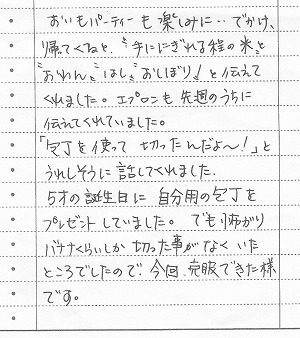 おいもパーティーも楽しみに…でかけ、
帰てくると、〝手ににぎれる程の米〟と
〝おわん〟〝はし〟〝おしぼり〟と伝えて
くれました。エプロンも先週のうちに
伝えてくれていました。
「包丁を使って切ったんだよ〜!」と
うれしそうに話してくれました。
5才の誕生日に自分用の包丁を
プレゼントしていました。でも
バナナくらいしか切った事がなくいた
ところでしたので、今回、克服できた様
です。